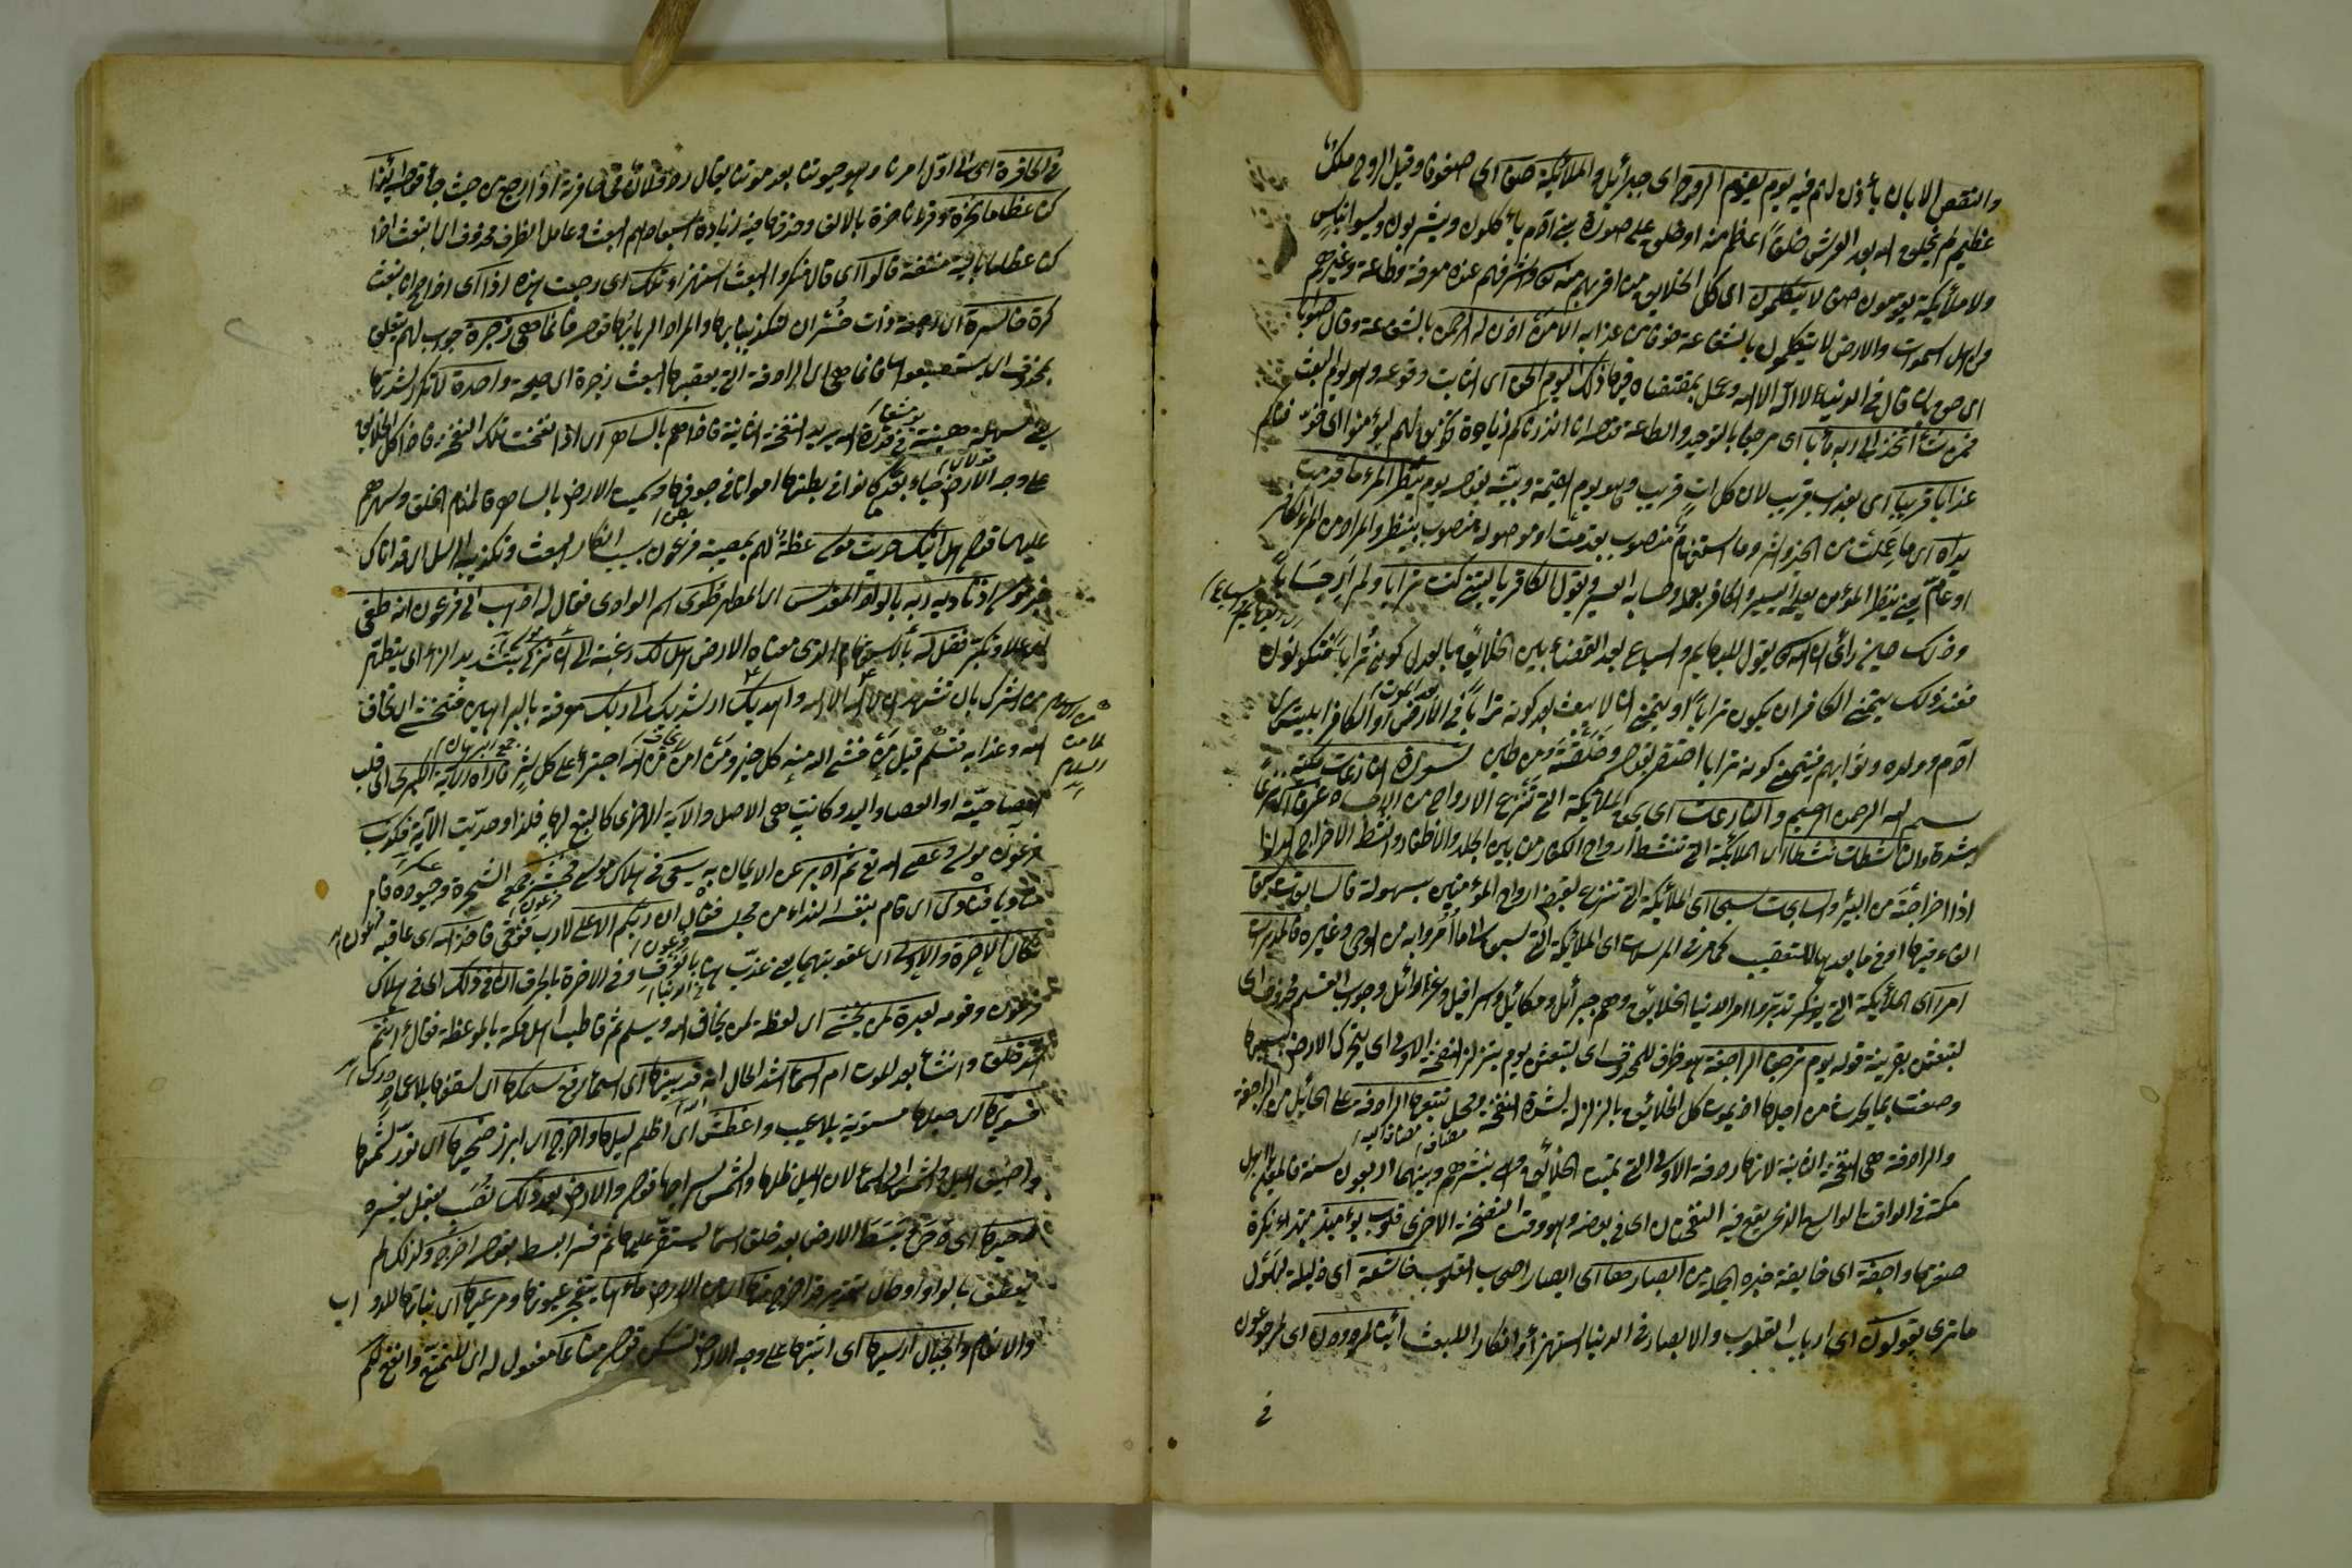 والنقص الا بان يأذن لهم فيه يوم يقوم الروح اى جبرائيل والملائكة صفا اى صفوفا وقيل الروح ملك
عظيم لم يخلق الله بعد العرش خلقا اعظم منه او خلق على صورة بني آدم يأكلون ويشربون وليسوا بناس
ولا ملائكة يقومون صفا لا يتكلمون اى كل الخلايق مع اقربهم منه واشرفهم عنده معرفة وطاعة وغيرهم
من اهل السموات والارض لا يتكلمون بالشفاعة خوفا من عذابه الا من اذن له الرحمن بالشفاعة وقال صوابا
اى حق بان قال في الدنيا لا اله الا الله وعمل بمقتضاه فيها ذلك اليوم الحق اى الثابت وقوعه وهو يوم البعث
فمن شاء اتخذ الى ربه مآبا اى مرجعا بالتوحيد والطاعة قوله انا انذرناكم زيادة تخويف لهم ليؤمنوا اى خوفناكم
عذابا قريبا اى بعذاب قريب لان كل آت قريب وهو يوم القيمة وبينه بقوله يوم ينظر المرء ما قدمت
يداه اى ما عملت من الخير والشر وما استفهام منصوب بقدمت او موصولة منصوب بينظر والمراد من المرء الكافر
او عام يعني ينظر المؤمن بعمله اليسير والكافر بعمله وحسابه العسير ويقول الكافر يا ليتني كنت ترابا ولم ار حسابا
وذلك حين رأى ان الله يقول للبهايم والسباع بعد القضاء بين الخلايق بالعدل كونى ترابا فتكونون
فعند ذلك يتمنى الكافر ان يكون ترابا او يتمنى ان لا يبعث بعد كونه ترابا في الارض او الكافر ابليس يرى
آدم وولده وثوابهم فيتمنى كونه ترابا احتقر بقوله وخلقته من طين سورة النازعات مكية
بسم الله الرحمن الرحيم والنازعات اى بحق الملائكة التي تنزع الارواح من الكفار غرقا اى نزعا
بشدة والناشطات نشطا اى الملائكة التي تنشط ارواح الكفار من بين الجلد والاظفار والنشط الاخراج
اذا اخرجته من البئر والسابحات سبحا اى الملائكة التي تنزع لقبض ارواح المؤمنين بسهولة فالسابقات سبقا
الفاء فيها وفي ما بعدها للتعقيب كما مر في المرسلات اى الملائكة التي تسبق الى ما أمروا به من الوحي وغيره فالمدبرات
امرا اى الملائكة التي تدبر امر الدنيا الخلائق وهم جبرائيل وميكائيل واسرافيل وعزرائيل وجواب القسم محذوف اى
لتبعثن بقرينة قوله يوم ترجف الراجفة هو ظرف للمحذوف اى لتبعثن يوم يتزلزل النفخة الاولى اى يتحرك الارض بسببها
وصفت بما يحدث من اجلها اذ يموت كل الخلائق بالزلزلة لشدة النفخة ومحل تتبعها الرادفة على الحال من الراجفة
والرادفة هي النفخة الثانية لانها رادفة الاولى التي يميت الخلائق ثم ينشرهم وبينهما اربعون سنة فالمعنى لاهل
مكة في الوقت الواسع الذي يقع فيه النفختان اى في بعضه وهو وقت النفخة الاخرى قلوب يومئذ مبتداء نكرة
صفتها واجفة اى خايفة خبره الجملة من ابصارها اى ابصار اصحاب القلوب خاشعة اى ذليلة لهول
ما ترى يقولون اى ارباب القلوب والابصار في الدنيا استهزاء وانكارا للبعث ائنا لمردودون اى لمرجوعون
في
في الحافرة اى الى اول امرنا وهو حيوتنا بعد موتنا يقال رد فلان في حافرته اذا رجع من حيث جاء قوله أئذا
كنا عظاما نخرة وقرئ ناخرة بالالف وحذفها فيه زيادة استبعادهم البعث وعامل الظرف محذوف اى انبعث اذا
كنا عظاما بالية متفتتة قالوا اى قال منكروا البعث استهزاء تلك اى رجعت هذه اذا اى اذا صح ان نبعث
كرة خاسرة اى رجعة ذات خسران لتكذيبنا بها والمراد اربابها قوله فانما هي زجرة جواب لهم يتعلق
بمحذوف اى لا تستصعبوها فانما هي اى الرادفة التي يعقبها البعث زجرة اى صيحة واحدة لا تكرر لشدتها
يعني سهلة هينة في قدرة الله يريد النفخة الثانية فاذا هم بالساهرة اى اذا نفخت تلك النفخة فاذا كل الخلايق
على وجه الارض احياء بعد ما كانوا في بطنها امواتا في جوفها وسميت الارض بالساهرة لمنام الخلق وسهرهم
عليها قوله هل اتيك حديث موسى عظة لهم بمصيبة فرعون بسبب انكار البعث وتكذيبه الرسل اى قد اتاك
خبر موسى اذ ناديه ربه بالواد المقدس اى المطهر طوى اسم الوادى فقال له اذهب الى فرعون انه طغى
اى علا وتكبر فقل له بالاستفهام الذي معناه الارض هل لك رغبة الى ان تزكى بتشديد الزاء اى يتطهر
من الشرك بان تشهد ان لا اله الا الله واهديك اى ارشدك الى ربك معرفة بالبراهين فتخشى اى تخاف
الله وعذابه فتسلم قيل من خشى الله منه كل خير ومن امن من الله اجترأ على كل شر فاراه الآية الكبرى اى قلب
العصا حية او العصا واليد وكانت هي الاصل والآية الاخرى كالتبع لها فلذا وحدت الآية فكذب
فرعون موسى وعصى الله تعالى ثم ادبر عن الايمان به يسعى في هلاك موسى فحشر جمع السحرة وجنوده قام
فنادى اى قام بنفسه للنداء من مجلسه فقال انا ربكم الاعلى لا رب فوقي فاخذه الله اى عاقبه فرعون
نكال الآخرة والاولى اى عقوبتهما يعني عذب بالغرق وفي الآخرة بالحرق ان في ذلك اى في هلاك
فرعون وقومه لعبرة لمن يخشى اى لعظة لمن يخاف الله ويسلم ثم خاطب اهل مكة بالموعظة فقال أأنتم
اشد خلقا وانشاء بعد الموت ام السماء اشد الحال انه قد بنيها اى السماء رفع سمكها اى سقفها بلا عماد
فسويها اى جعلها مستوية بلا عيب واغطش اى اظلم ليلها واخرج اى ابرز ضحيها اى نور شمسها
واضيف الليل والشمس الى السماء لان الليل ظلها والشمس سراجها قوله والارض بعد ذلك نصب بفعل يفسره
دحيها اى بسط الارض بعد خلق السماء ليستقر عليها ثم فسر البسط بقوله اخرج ولذلك لم
يعطف بالواو او حال بتقدير قد اخرج منها اى من الارض ماءها بتفجير عيونها ومرعيها اى نباتها للدواب
والانعام والجبال ارسيها اى اثبتها على وجه الارض لتسكن قوله متاعا مفعول له اى لمنفعة وانفع لكم